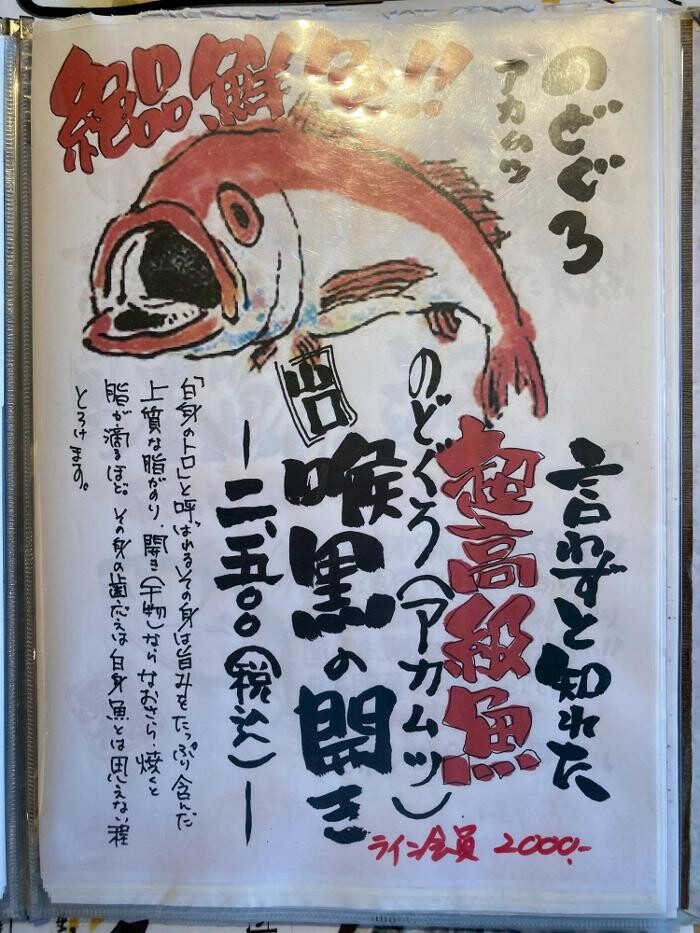 絶品鮮魚!!
のどぐろ
アカムツ
言わずと知れた
超高級魚
のどぐろ(アカムツ)
山口
喉黒の開き
ー二、五〇〇(税込)ー
「白身のトロ」と呼ばれるその身は旨みをたっぷり含んだ
上質な脂がのり、開き(干物)ならなおさら焼くと
脂が滴るほど。その身の歯応えは白身魚とは思えない程
とろけます。
ライン会員 2000.-